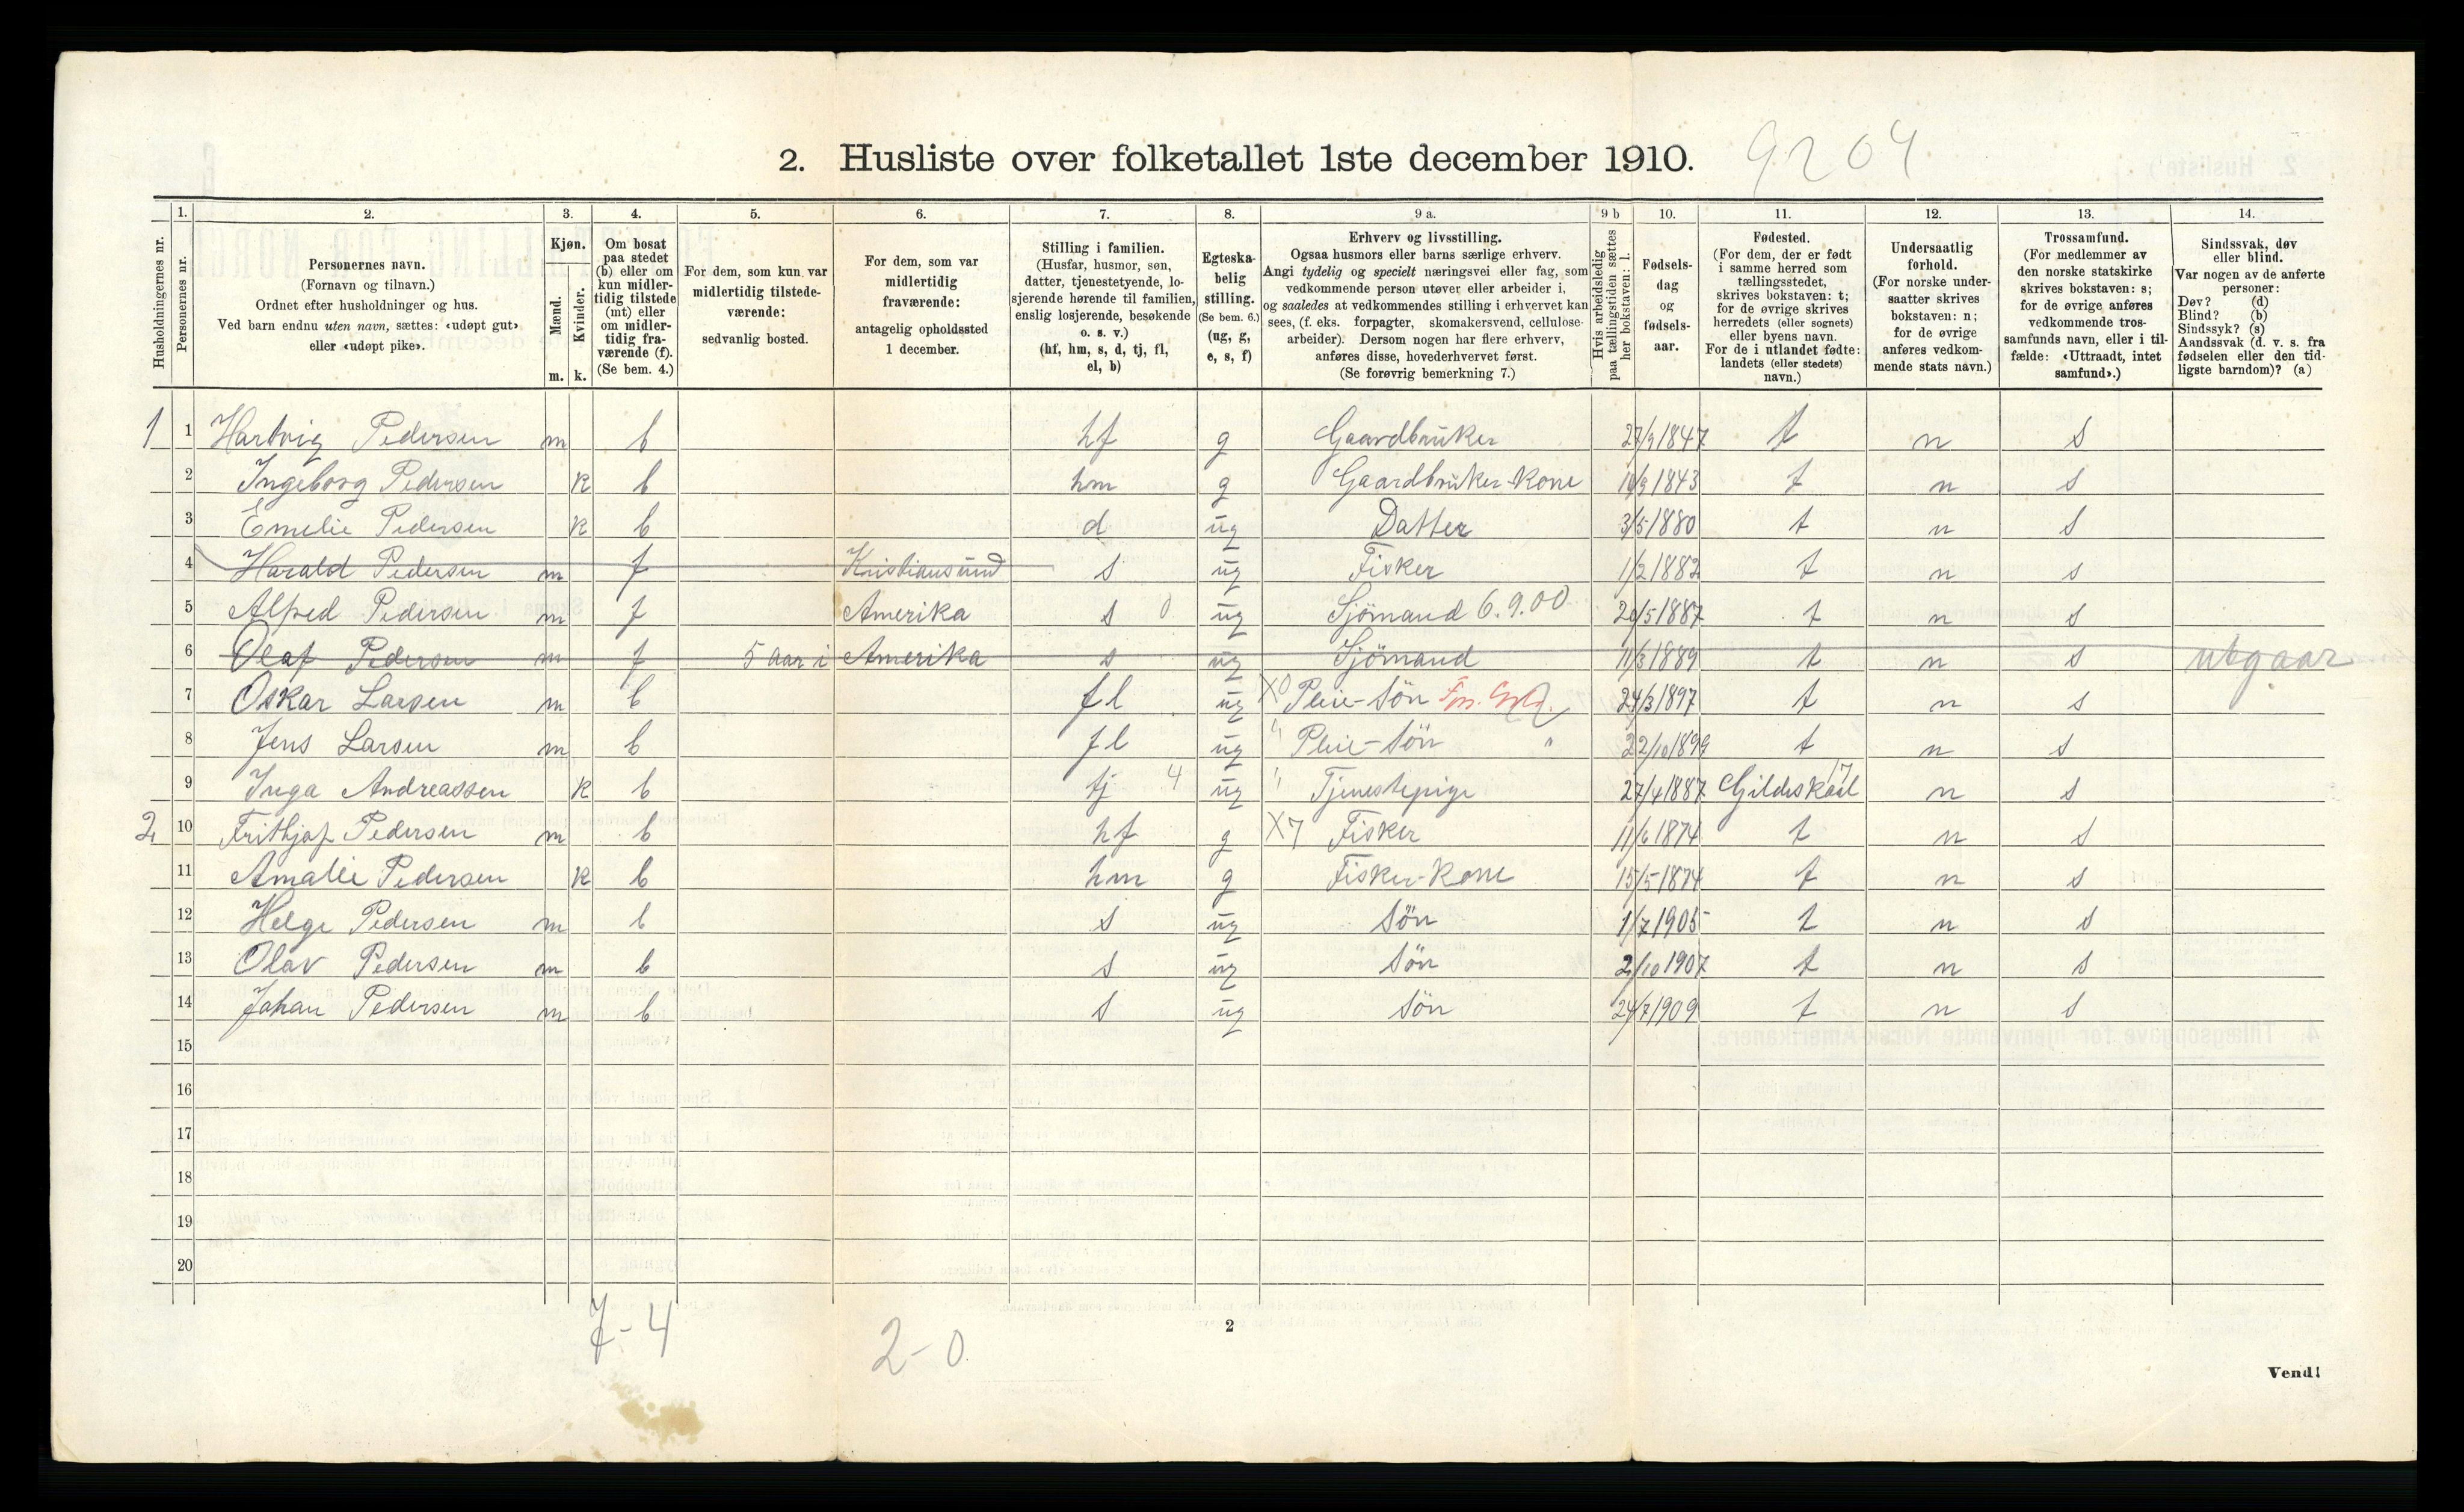 2. Husliste over folketallet 1ste december 1910. 9204
Husholdningernes nr.
1. Personernes nr.
2. Personernes navn. (Fornavn og tilnavn.) Ordnet efter husholdninger og hus. Ved barn endnu uten navn, sættes: «udøpt gut» eller «udøpt pike».
3. Kjøn. Mænd. m. Kvinder. k.
4. Om bosat paa stedet (b) eller om kun midlertidig tilstede (mt) eller om midlertidig fraværende (f). (Se bem. 4.)
5. For dem, som kun var midlertidig tilstedeværende: sedvanlig bosted.
6. For dem, som var midlertidig fraværende: antagelig opholdssted 1 december.
7. Stilling i familien. (Husfar, husmor, søn, datter, tjenestetyende, losjerende hørende til familien, enslig losjerende, besøkende o. s. v.) (hf, hm, s, d, tj, fl, el, b)
8. Egteskabelig stilling. (Se bem. 6.) (ug, g, e, s, f)
9 a. Erhverv og livsstilling. Ogsaa husmors eller barns særlige erhverv. Angi tydelig og specielt næringsvei eller fag, som vedkommende person utøver eller arbeider i, og saaledes at vedkommendes stilling i erhvervet kan sees, (f. eks. forpagter, skomakersvend, cellulosearbeider). Dersom nogen har flere erhverv, anføres disse, hovederhvervet først. (Se forøvrig bemerkning 7.)
9 b Hvis arbeidsledig paa tællingstiden sættes her bokstaven: l.
10. Fødselsdag og fødselsaar.
11. Fødested. (For dem, der er født i samme herred som tællingsstedet, skrives bokstaven: t; for de øvrige skrives herredets (eller sognets) eller byens navn. For de i utlandet fødte: landets (eller stedets) navn.)
12. Undersaatlig forhold. (For norske undersaatter skrives bokstaven: n; for de øvrige anføres vedkommende stats navn.)
13. Trossamfund. (For medlemmer av den norske statskirke skrives bokstaven: s; for de øvrige anføres vedkommende trossamfunds navn, eller i tilfælde: «Uttraadt, intet samfund».)
14. Sindssvak, døv eller blind. Var nogen av de anførte personer: Døv? (d) Blind? (b) Sindssyk? (s) Aandssvak (d. v. s. fra fødselen eller den tidligste barndom)? (a)
1 1 Hartvig Pedersen m b hf g Gaardbruker 27/9 1847 t n s
2 Ingeborg Pedersen k b hm g Gaardbruker-Kone 1843 t n s
3 Emelie Pedersen k b d ug Datter 3/5 1880 t n s
4 Harald Pedersen m f Kristiansund s ug Fisker 1/2 1882 t n s
5 Alfred Pedersen m f Amerika s 0 ug Sjömand 6.9.00 20/5 1887 t n s
6 Olaf Pedersen m f 5 aar i Amerika s ug Sjömand 11/3 1889 t n s utgaar
7 Oskar Larsen m b fl ug X0 Pleie-Sön 24/3 1897 t n s
8 Jens Larsen m b fl ug " Pleie-Sön " 22/10 1899 t n s
9 Inga Andreassen k b tj 4 ug " Tjenestepige 27/4 1887 Gildeskaal 17 n s
2 10 Frithjof Pedersen m b hf g X7 Fisker 11/6 1874 t n s
11 Amalie Pedersen k b hm g Fisker-Kone 15/5 1874 t n s
12 Helge Pedersen m b s ug Sön 1/7 1905 t n s
13 Olav Pedersen m b s ug Sön 2/10 1907 t n s
14 Johan Pedersen m b s ug Sön 24/7 1909 t n s
15
16
17
18
19
20
7-4
2-0
2
Vend!